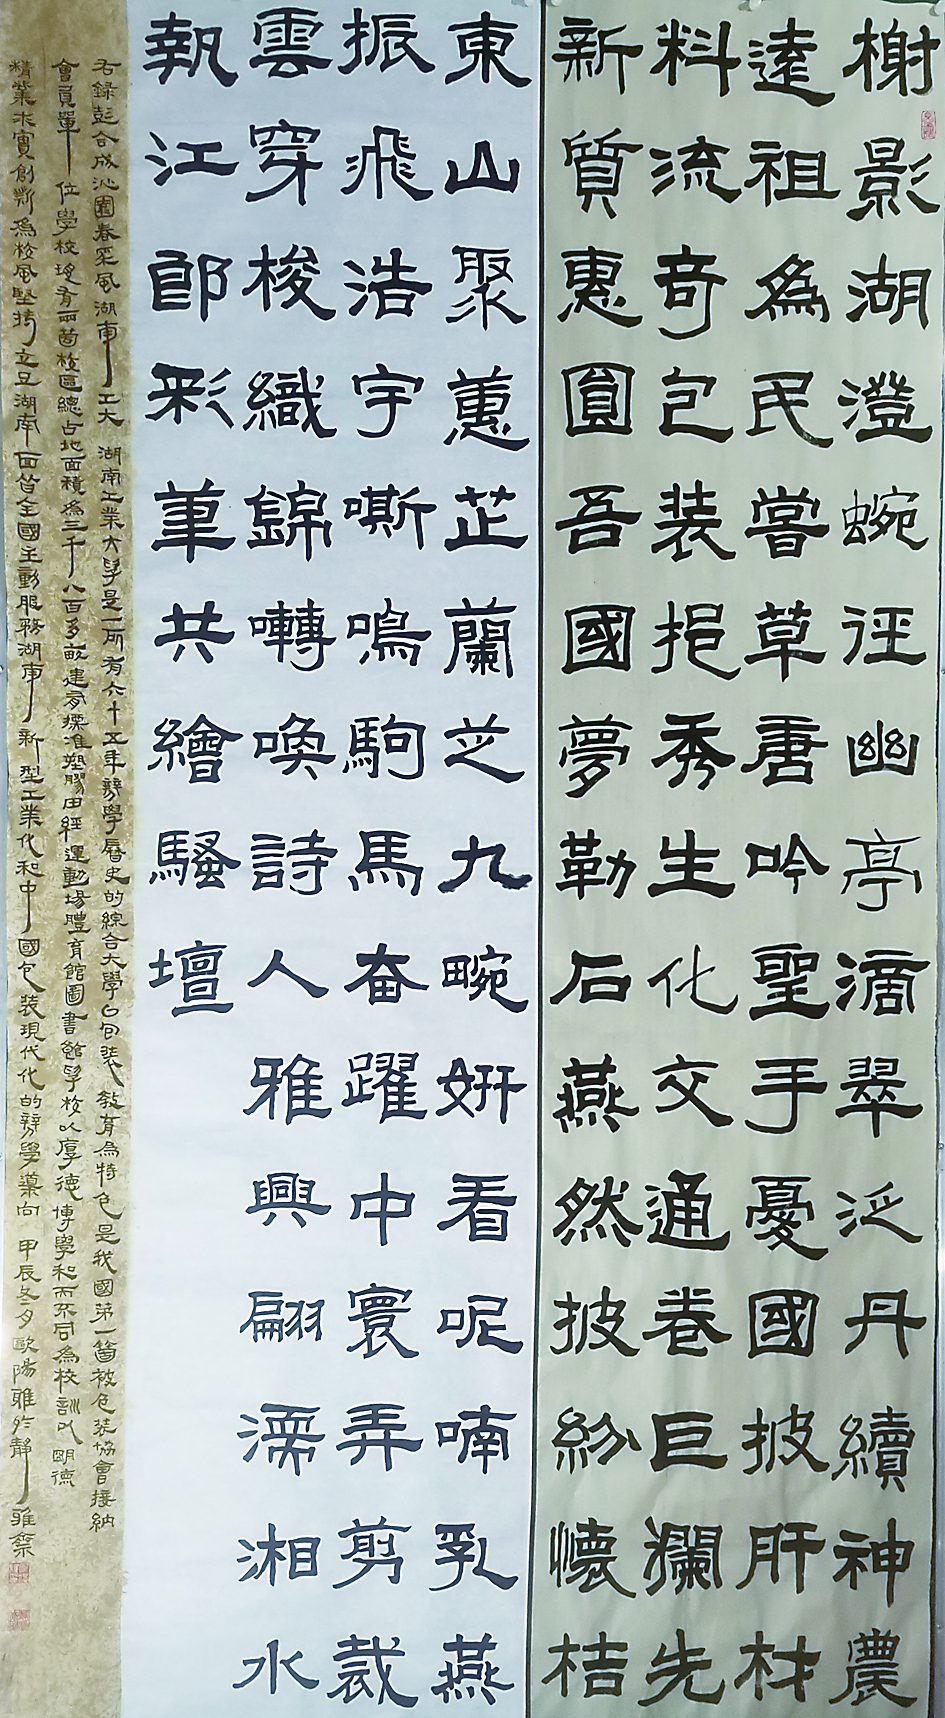 榭影湖澄蜿徑幽亭滴翠泛丹續神農
遠祖為民嘗草唐吟聖手憂國披肝材
料流奇包装挹秀生化交通卷巨瀾先
新質惠圓吾國夢勒石燕然披紛懷桔
東山聚蕙芷蘭芝九畹妍看呢喃乳燕
振飛浩宇嘶鳴駒馬奋躍中寰弄剪裁
雲穿梭織錦囀喚詩人雅興翩濡湘水
執江郎彩筆共繪騷壇
右錄彭合成沁園春采風湖南工大 湖南工業大學是一所有六十五年辦學曆史的綜合大學 包装教育為特色是我國第一箇被包装協會接納
會員單位學校現有兩箇校區總占地面積為三千八百多畝建有標准塑膠田經運動場體育館圖書館學校以厚德博學和而不同為校訓以明德
精業求實創新為校風堅持立足湖南面皆全國主動服務湖南新型工業化和中國包装現代化的辦學導向 甲辰冬夕歐陽雅於靜雅齋